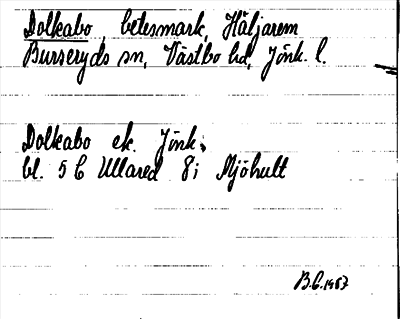 Dolkabo, betesmark, Häljarem
Burseryds sn, Västbo hd, Jönk. l.
Dolkabo ek. Jönk.
bl. 5 C Ullared 8 i Mjöhult
B.C. 1967